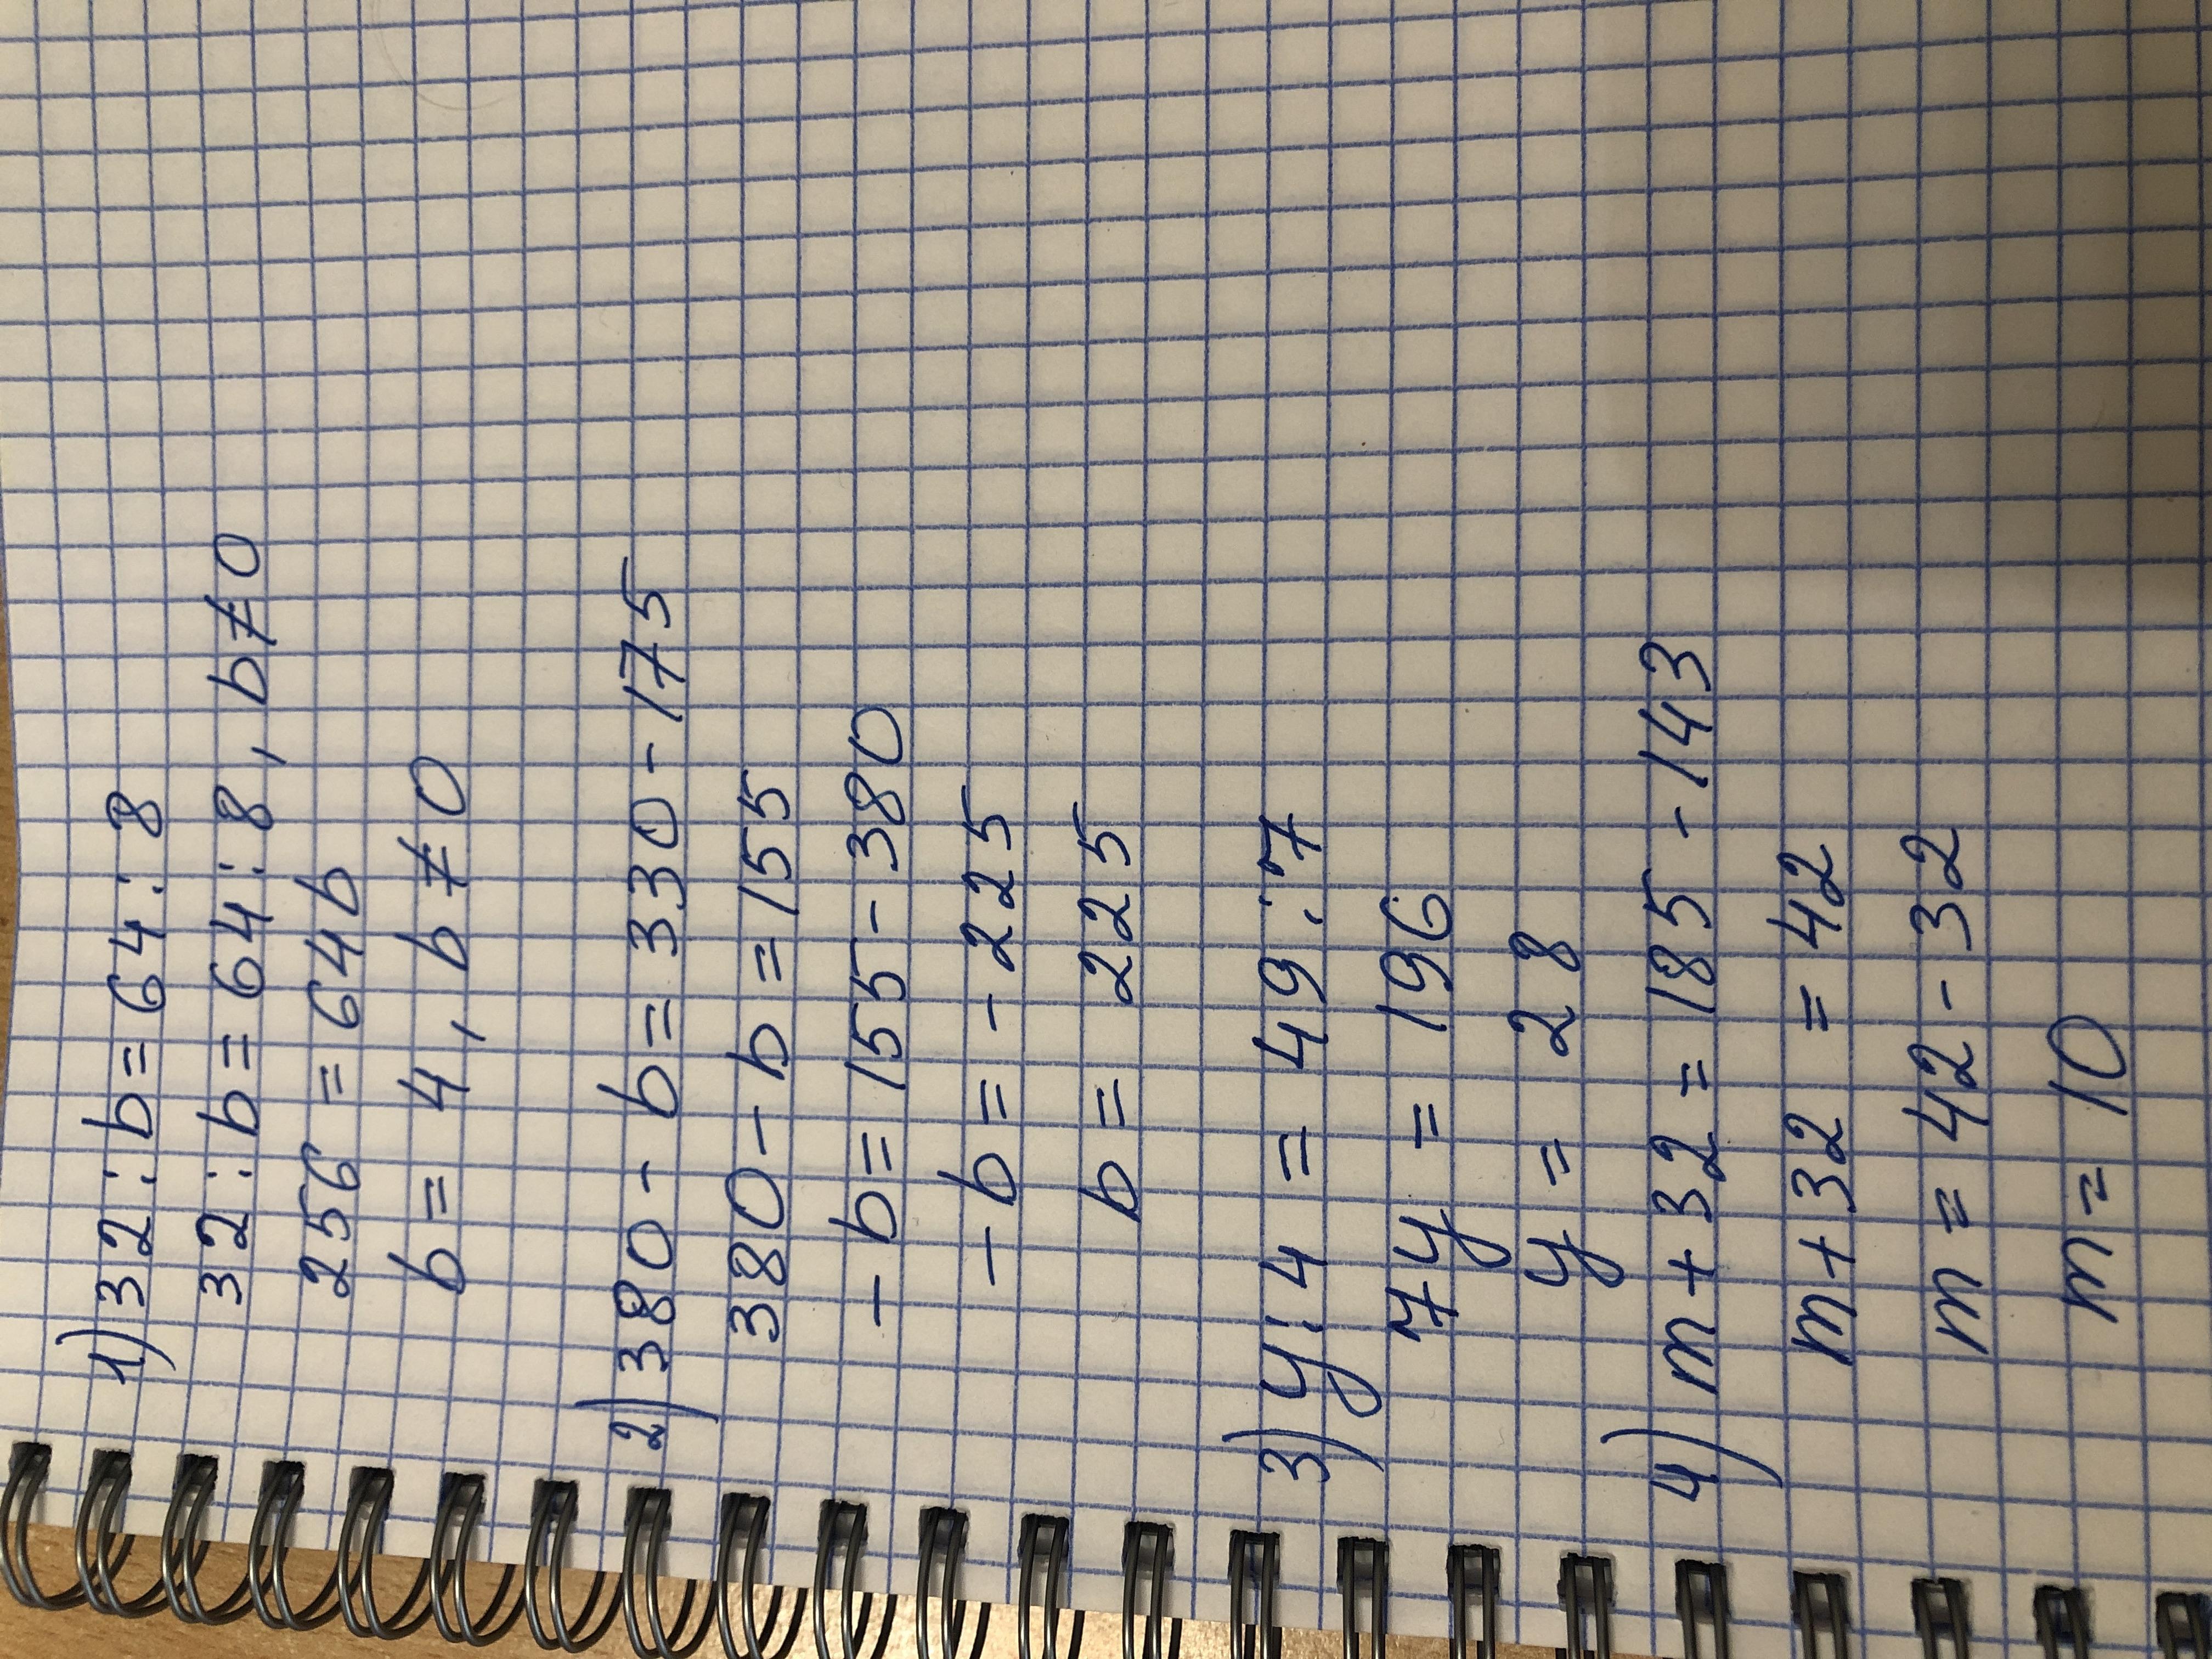 1) 32 : b = 64 : 8
32 : b = 64 : 8, b ≠ 0
256 = 64b
b = 4, b ≠ 0
2) 380 - b = 330 - 175
380 - b = 155
- b = 155 - 380
- b = - 225
b = 225
3) y : 4 = 49 : 7
7y = 196
y = 28
4) m + 32 = 185 - 143
m + 32 = 42
m = 42 - 32
m = 10